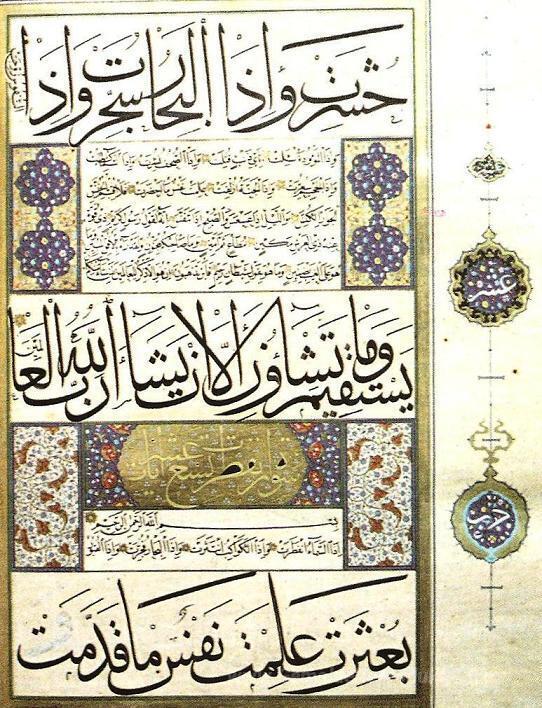 حُشِرَت وَاِذَا البِحَارُ سُجِّرَت وَاِذَا
النفوس زوجت
وَاِذَا المَوؤدَةُ سُئِلَت بِاَيِّ ذَنبٍ قُتِلَت وَاِذَا الصُّحُفُ نُشِرَت وَاِذَا السَّمَاءُ كُشِطَت
وَاِذَا الجَحِيمُ سُعِّرَت وَاِذَا الجَنَّةُ اُزلِفَت عَلِمَت نَفسٌ مَا اَحضَرَت فَلَا اُقسِمُ بِالخُنَّسِ
الجَوَارِ الكُنَّسِ وَاللَّيلِ اِذَا عَسعَسَ وَالصُّبحِ اِذَا تَنَفَّسَ اِنَّهُ لَقَولُ رَسُولٍ كَرِيمٍ ذِي قُوَّةٍ
عِندَ ذِي العَرشِ مَكِينٍ مُطَاعٍ ثَمَّ اَمِينٍ وَمَا صَاحِبُكُم بِمَجنُونٍ وَلَقَد رَآهُ بِالاُفُقِ المُبِينِ
وَمَا هُوَ عَلَى الغَيبِ بِضَنِينٍ وَمَا هُوَ بِقَولِ شَيطَانٍ رَجِيمٍ فَاَينَ تَذهَبُونَ اِن هُوَ اِلَّا ذِكرٌ لِلعَالَمِينَ لِمَن شَاءَ مِنكُم اَن
يَستَقِيمَ وَمَا تَشَاؤُنَ اِلَّا اَن يَشَاءَ اللّٰهُ رَبُّ العَالَمِينَ
بِسمِ اللّٰهِ الرَّحمٰنِ الرَّحِيمِ
اِذَا السَّمَاءُ انفَطَرَت وَاِذَا الكَوَاكِبُ انتَثَرَت وَاِذَا البِحَارُ فُجِّرَت وَاِذَا القُبُورُ
بُعثِرَت عَلِمَت نَفسٌ مَا قَدَّمَت
عشر
حزب